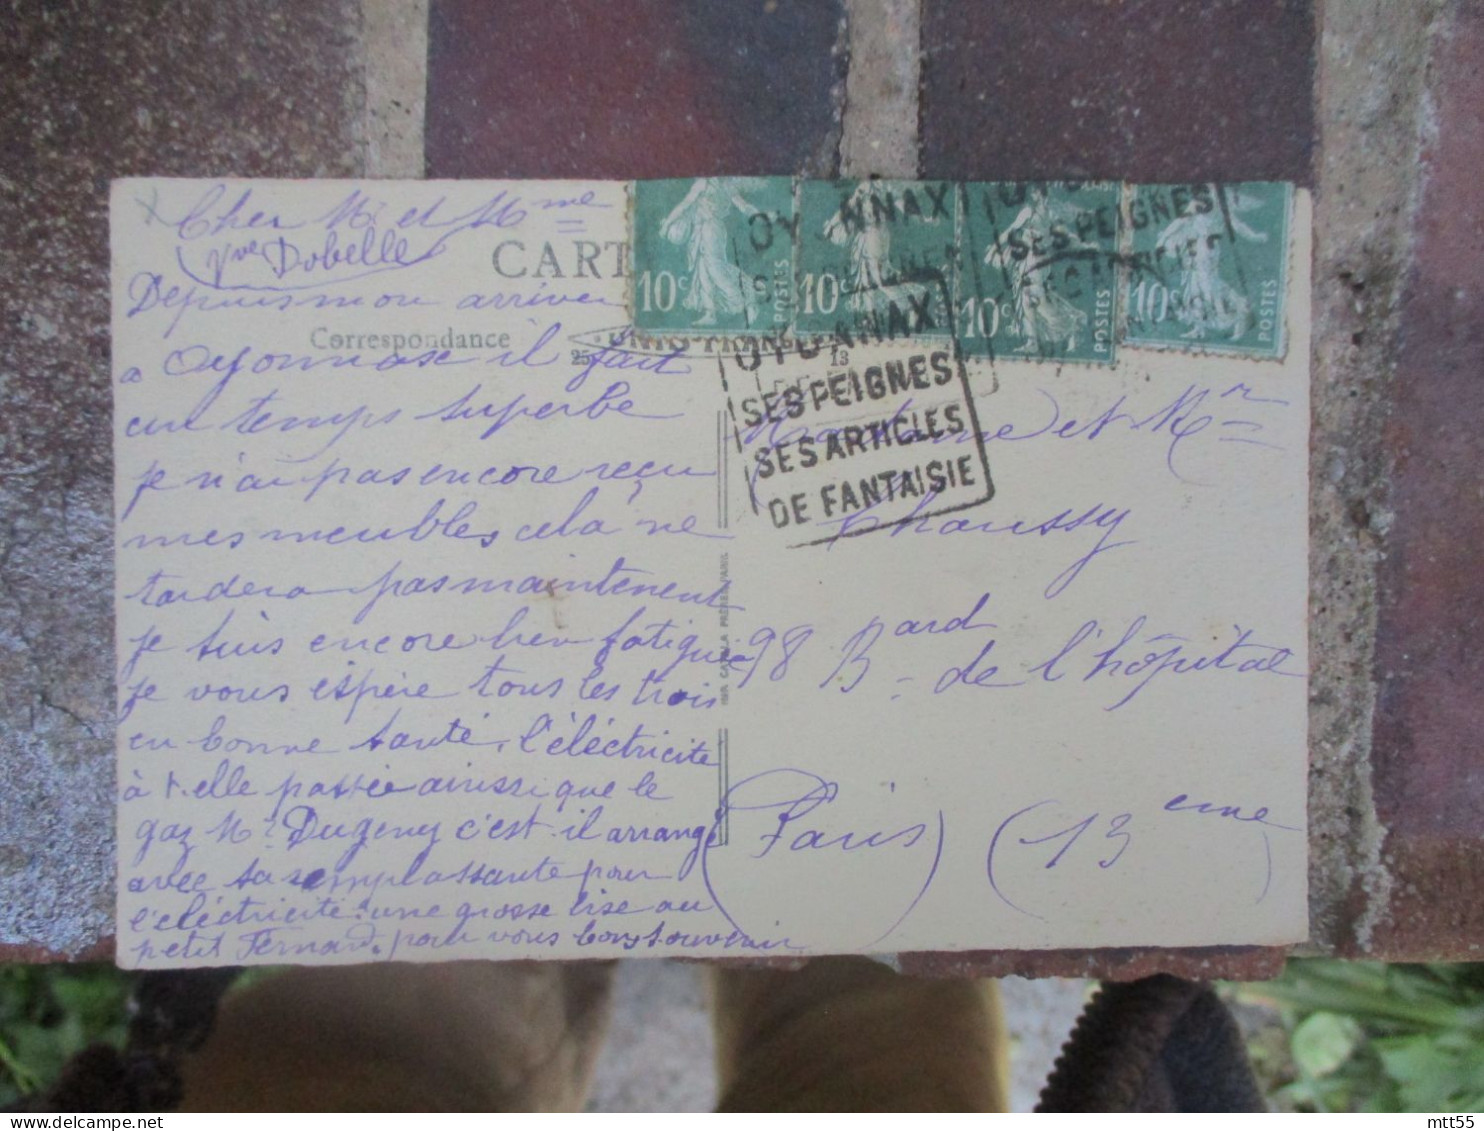 Cher Mr et Mme
Vve Dobelle
Depuis mon arrivée
a Oyonnax il fait
un temps superbe
je n'ai pas encore reçu
mes meubles cela ne
tardera pas maintenent
je suis encore bien fatiguée
je vous espère tous les trois
en bonne santé, l'éléctricite
à t-elle passée ainssi que le
gaz Mr Dugeny c'est-il arrangé
avec sa remplassante pour
l'eléctricité. une grosse bise au
petit Fernard. pour vous bons souvenir
CART
Correspondance
10c
POSTES
10c
10c
POSTES
10c
POSTES
OYONNAX
SES PEIGNES
OYONNAX
SES PEIGNES
SES ARTICLES
DE FANTAISIE
Madame et Mr
Chaussy
98 Bard de l'hôpital
Paris (13eme
mtt55